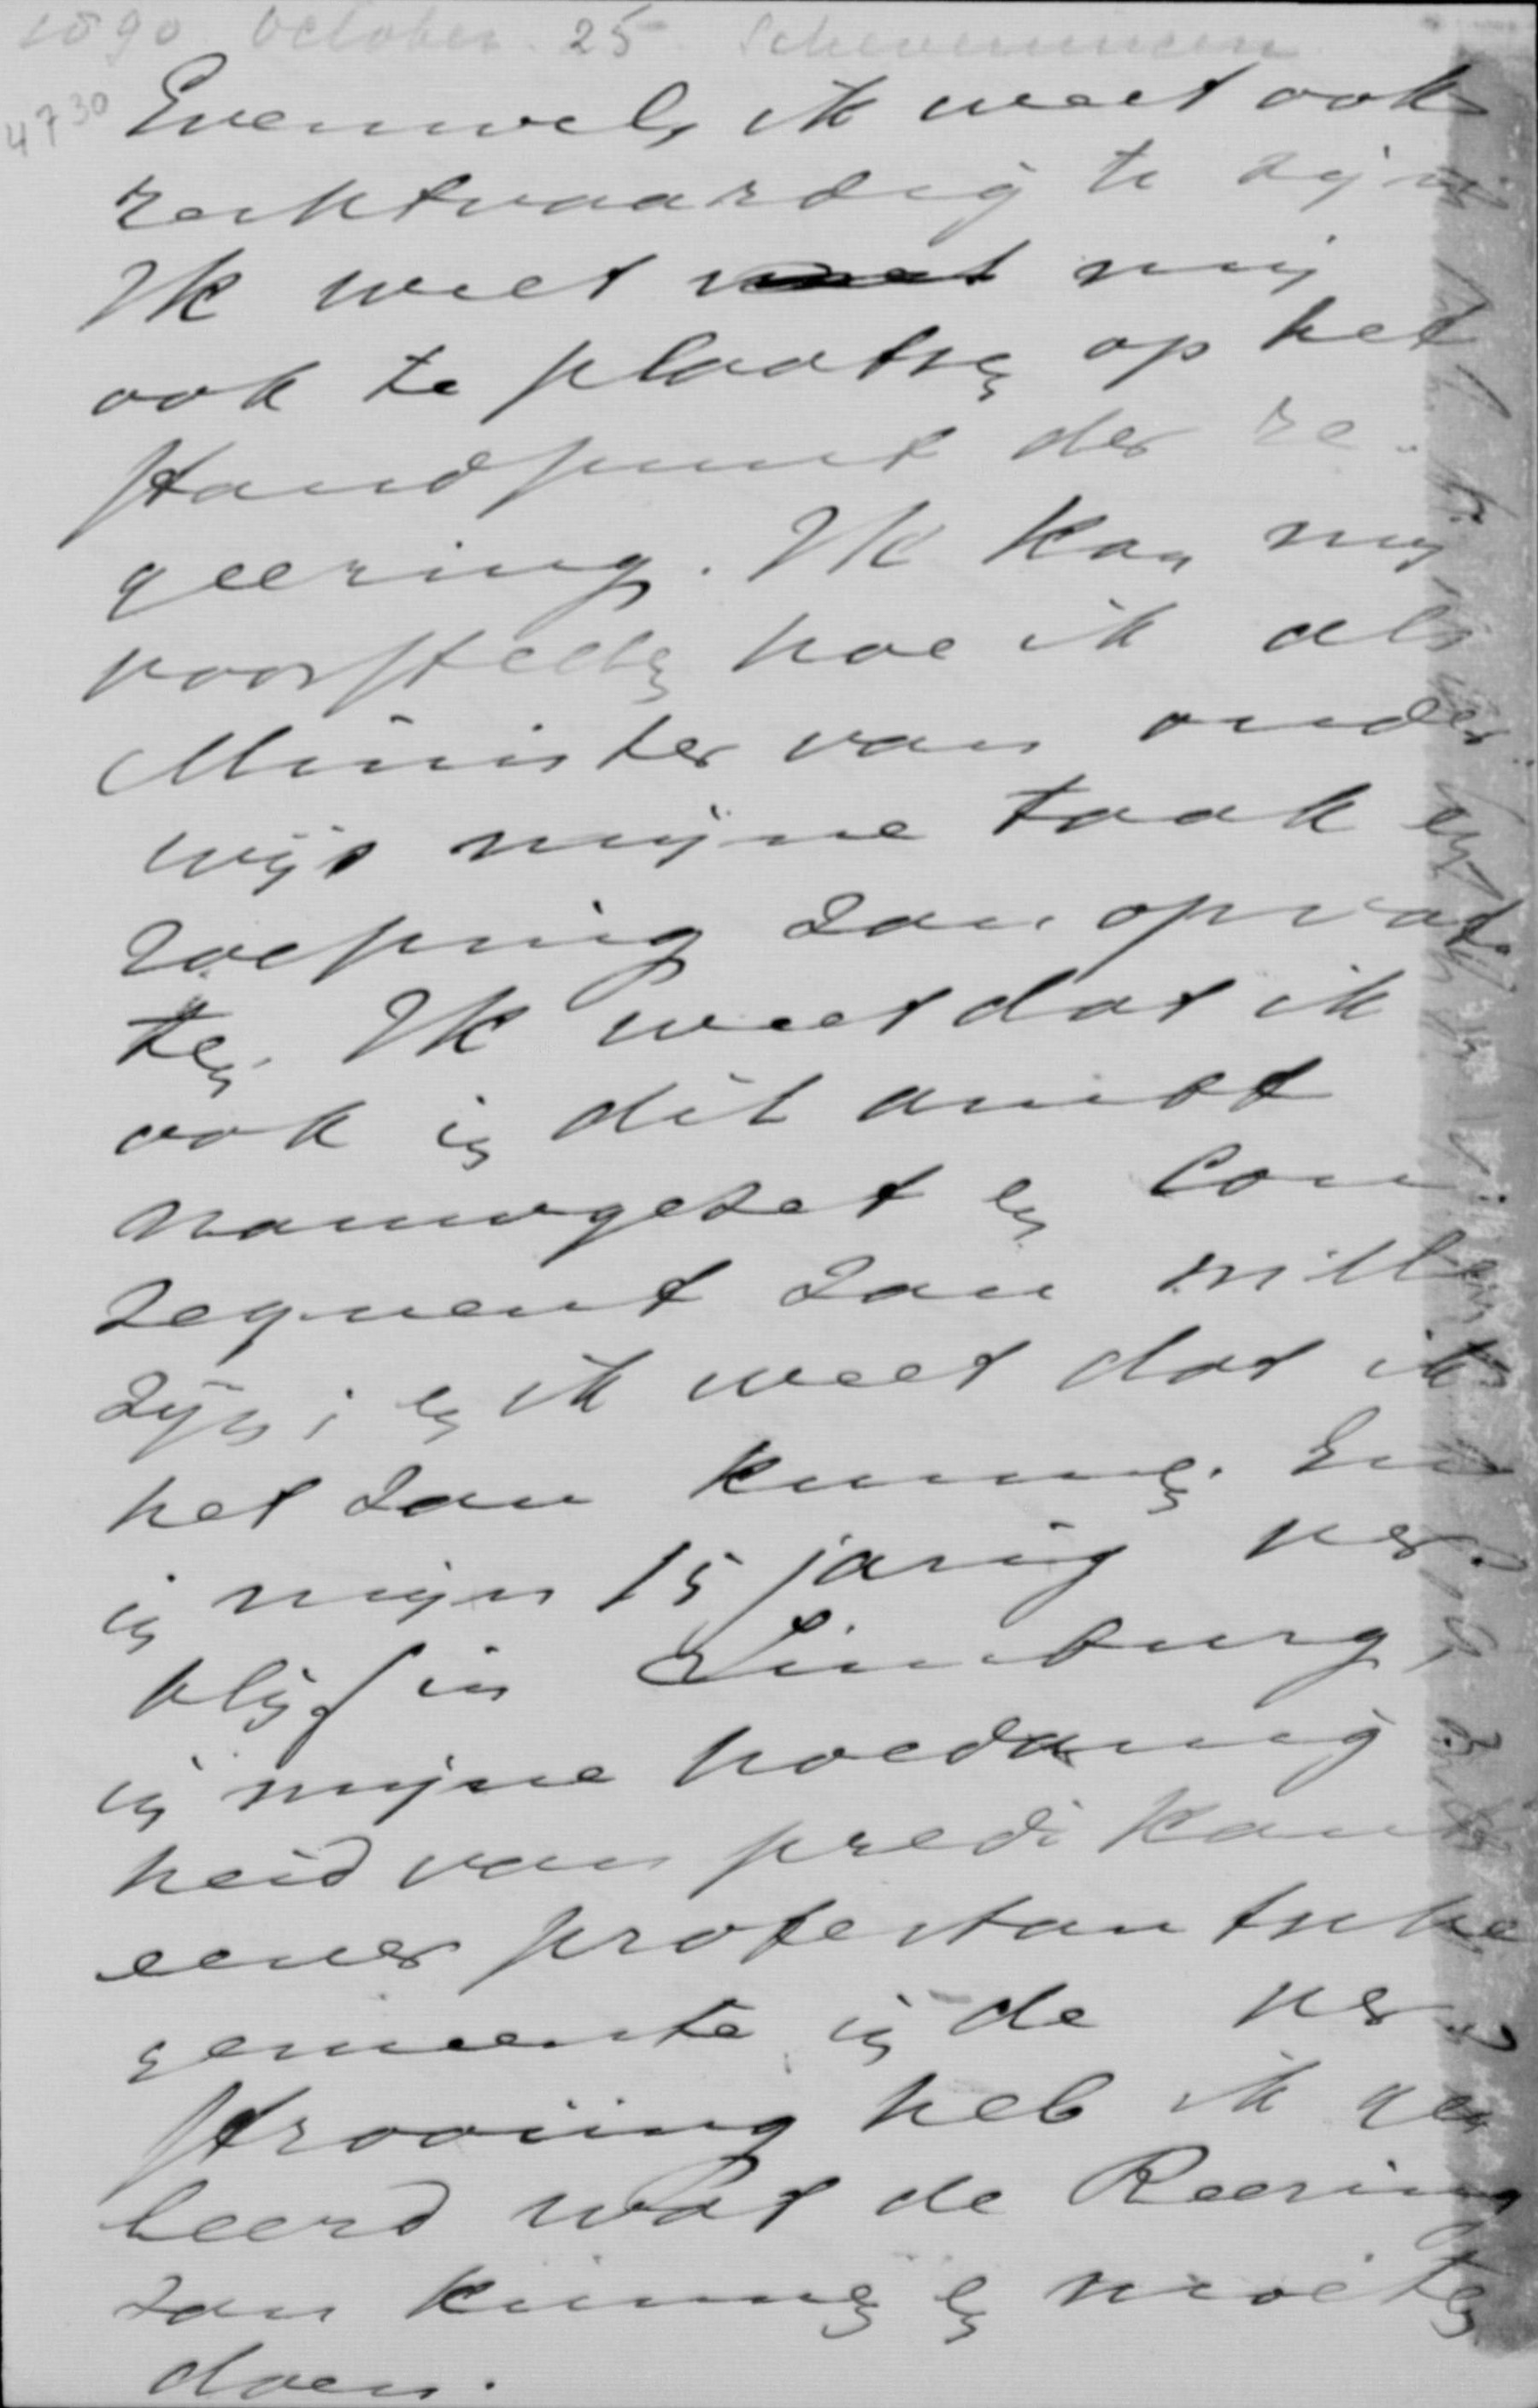 1890 October 25 Scheveningen
4730
Evenwel, ik weet ook
rechtvaardig te zijn
Ik weet mij
ook te plaatsen op het
standpunt der re-
geering. Ik kan mij
voorstellen hoe ik als
Minister van onder
wijs mijne taak en
roeping zou opvat-
ten. Ik weet dat ik
ook in dit ambt
nauwgezet en Con-
sequent zou willen
zijn; en ik weet dat ik
het zou kunnen. En
in mijn 15 jarig ver-
blijf in Limburg,
in mijne hoedanig
heid van predikant
eener protestantsche
gemeente in de ver-
strooiing heb ik ge
leerd wat de Reering
zou kunnen en moeten
doen.